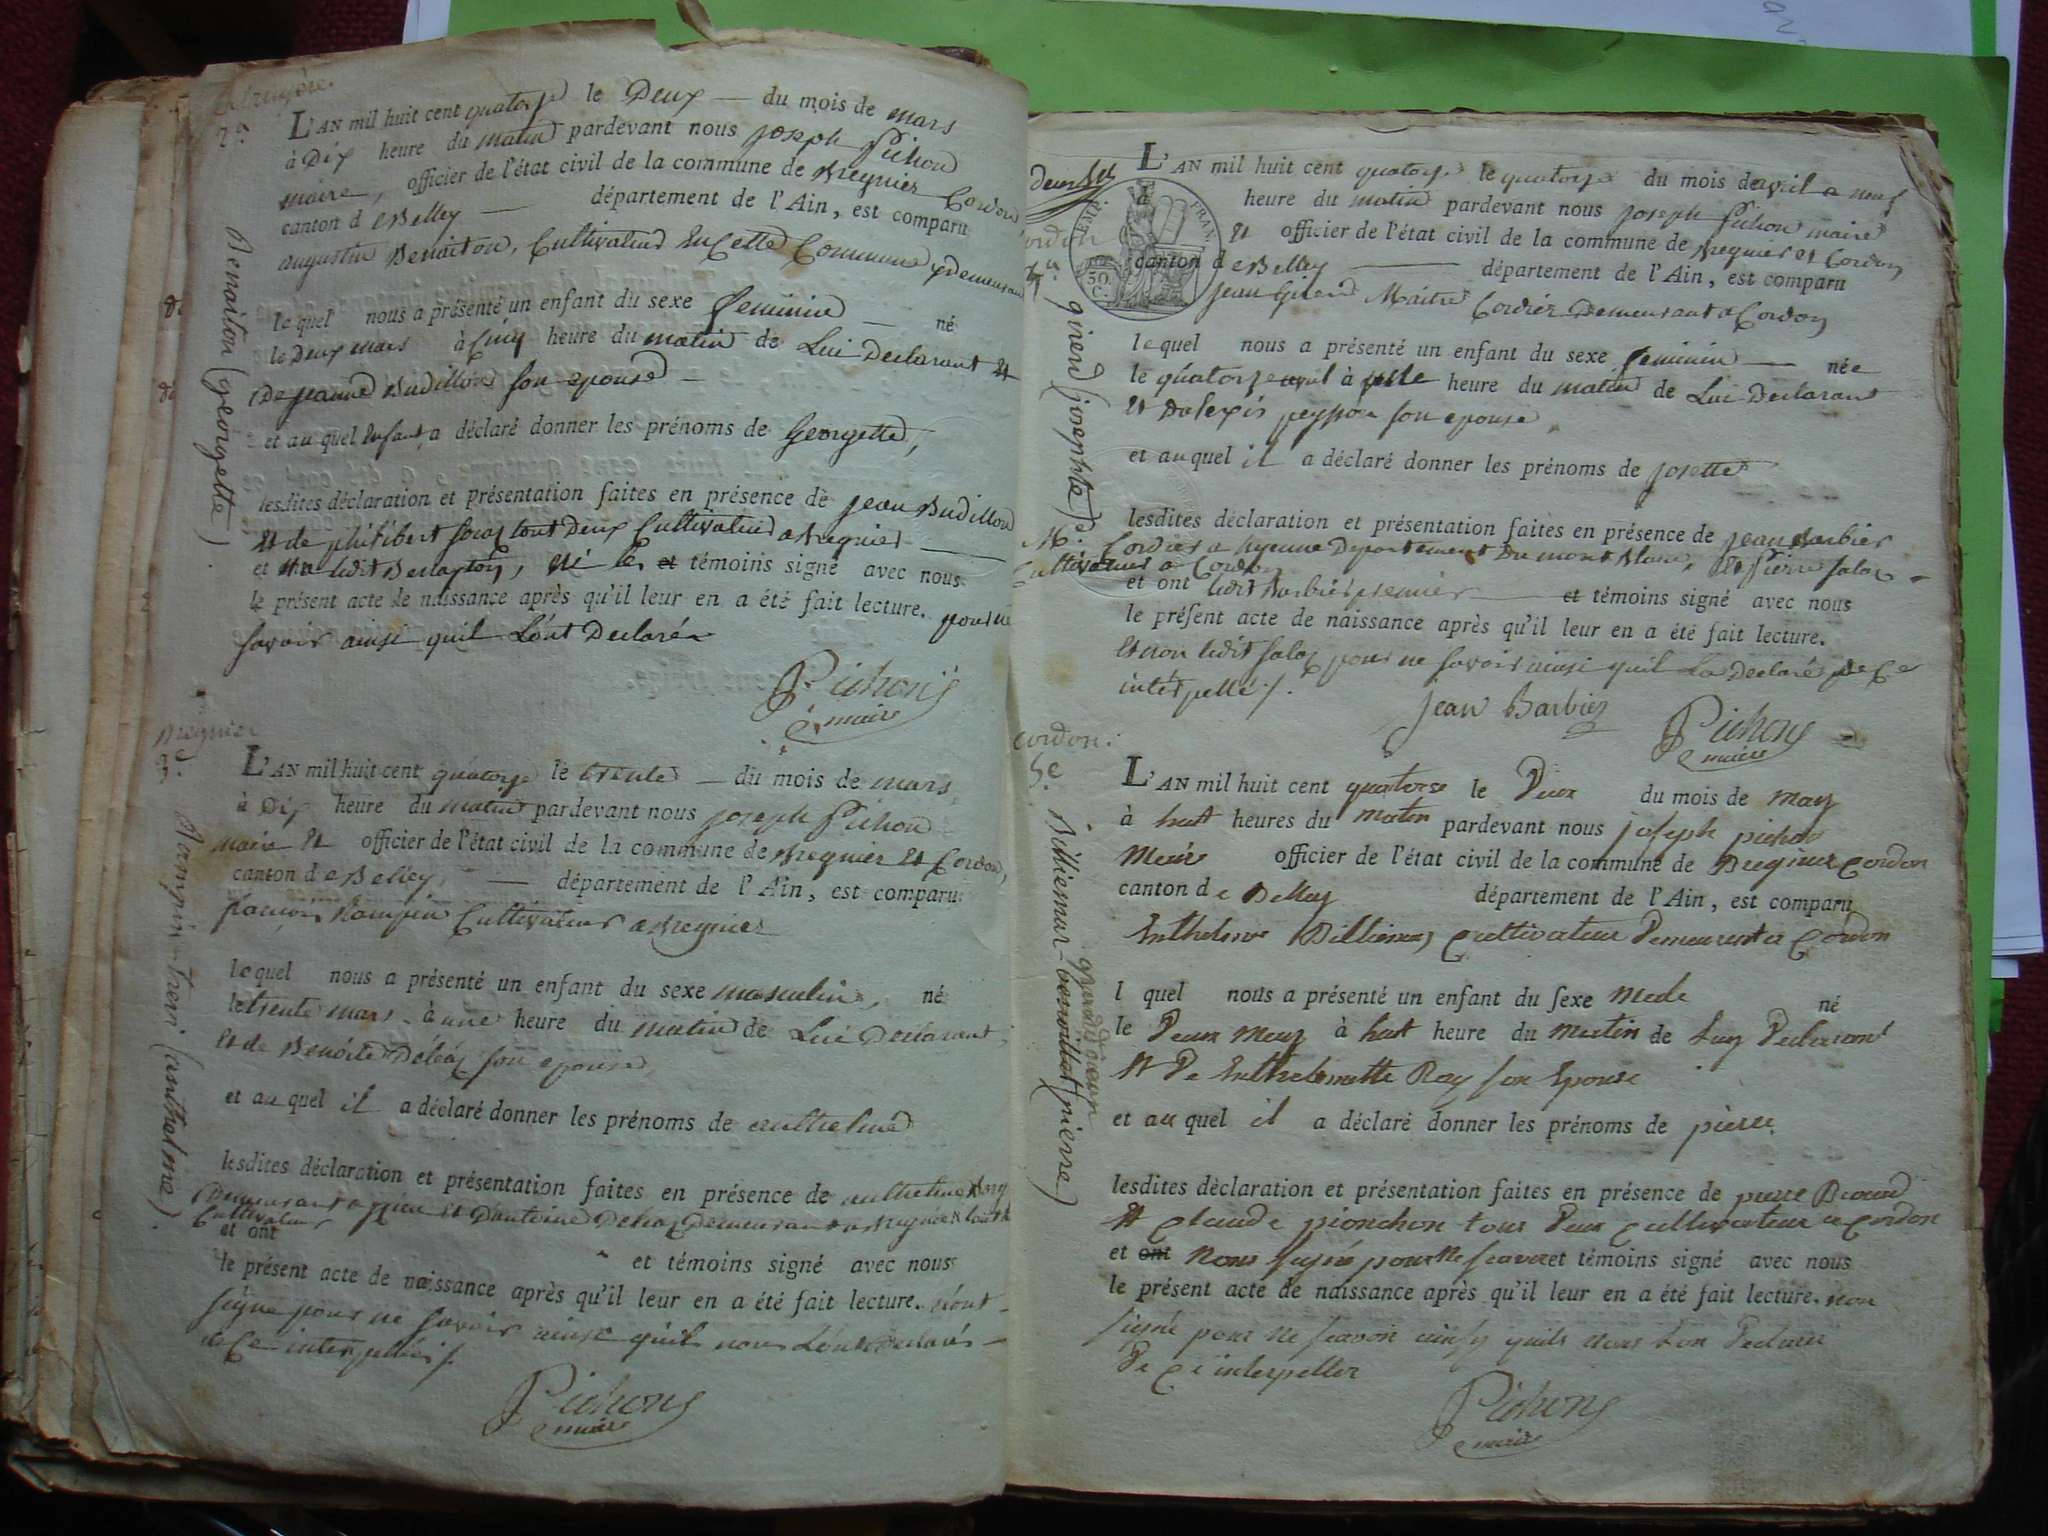 2e.
L'AN mil huit cent quatorze le Deux — du mois de mars
à Dix heure du matin pardevant nous joseph Pichon
maire, officier de l'état civil de la commune de Bregnier Cordon
canton de Belley — département de l'Ain, est comparu
augustin Benaiton, Cultivateur En Cette Commune y demeurant
lequel nous a présenté un enfant du sexe feminin — né
le Deux mars à Cinq heure du matin de Lui Declarant et
De jeanne Budillon son epouse —
et au quel Enfant a déclaré donner les prénoms de Georgette,
lesdites déclaration et présentation faites en présence de jean Budillon
et de philibert tout Deux Cultivateur a Bregnier —
et témoins signé avec nous
le présent acte de naissance après qu'il leur en a été fait lecture. pour ne
savoir ainsi quil L'ont Declaré
Pichon
maire
Benaiton (georgette)
Bregnier
3e.
L'AN mil huit cent quatorze le trente — du mois de mars
à Dix heure du matin pardevant nous joseph Pichon
maire Et officier de l'état civil de la commune de Bregnier Et Cordon,
canton de Belley — département de l'Ain, est comparu
françois Rampin Cultivateur a Bregnier
lequel nous a présenté un enfant du sexe masculin, né
le trente mars à une heure du matin de Lui Declarant,
et de Benoite son epouse
et au quel il a déclaré donner les prénoms de anthelme
lesdites déclaration et présentation faites en présence de anthelme
Demeurant a et Dantoine Demeurant a
Cultivateur
et ont et témoins signé avec nous
le présent acte de naissance après qu'il leur en a été fait lecture. n'ont
signé pour ne savoir ainsi quils nous L'ont Declarés —
de Ce interpellés /.
Pichon
maire
Rampin (anthelme)
L'AN mil huit cent quatorze le quatorze du mois davril a neuf
heure du matin pardevant nous joseph Pichon maire
Et officier de l'état civil de la commune de Bregnier et Cordon
canton de Belley — département de l'Ain, est comparu
jean Guierd Maitre Cordier Demeurant a Cordon
EMP. FRAN.
50
C.
lequel nous a présenté un enfant du sexe feminin — née
le quatorze avril à heure du matin de Lui Declarant
Et Dalexis son epouse
et au quel il a déclaré donner les prénoms de josette
lesdites déclaration et présentation faites en présence de jean Barbier
M. Cordier a yenne Departement Du mont Blanc, Et Pierre
Cultivateur a Cordon
et ont ledit Barbier premier — et témoins signé avec nous
le présent acte de naissance après qu'il leur en a été fait lecture.
Et non ledit pour ne savoir ainsi quil La Declaré de Ce
interpellé /.
Jean Barbier
Pichon
maire
cordon
5e.
L'AN mil huit cent quatorze le Deux du mois de may
à huit heures du matin pardevant nous joseph pichon
Meire officier de l'état civil de la commune de Bregnier cordon
canton de Belley département de l'Ain, est comparu
Enthelme Billiemas Cultivateur Demeurent a Cordon
l quel nous a présenté un enfant du sexe Male né
le Deux Mey à huit heure du Metin de Luy Declarant
Et De Enthelmette Rey son Epouse
et au quel il a déclaré donner les prénoms de pierre
lesdites déclaration et présentation faites en présence de pierre
Et Claude pionchon tous Deux Cultivateur a Cordon
et ont Nons signé pour Ne scavoir et témoins signé avec nous
le présent acte de naissance après qu'il leur en a été fait lecture. non
signé pour Ne scavoir ainsy quils nous Lon Declaré
De Ce interpeller
Pichon
maire